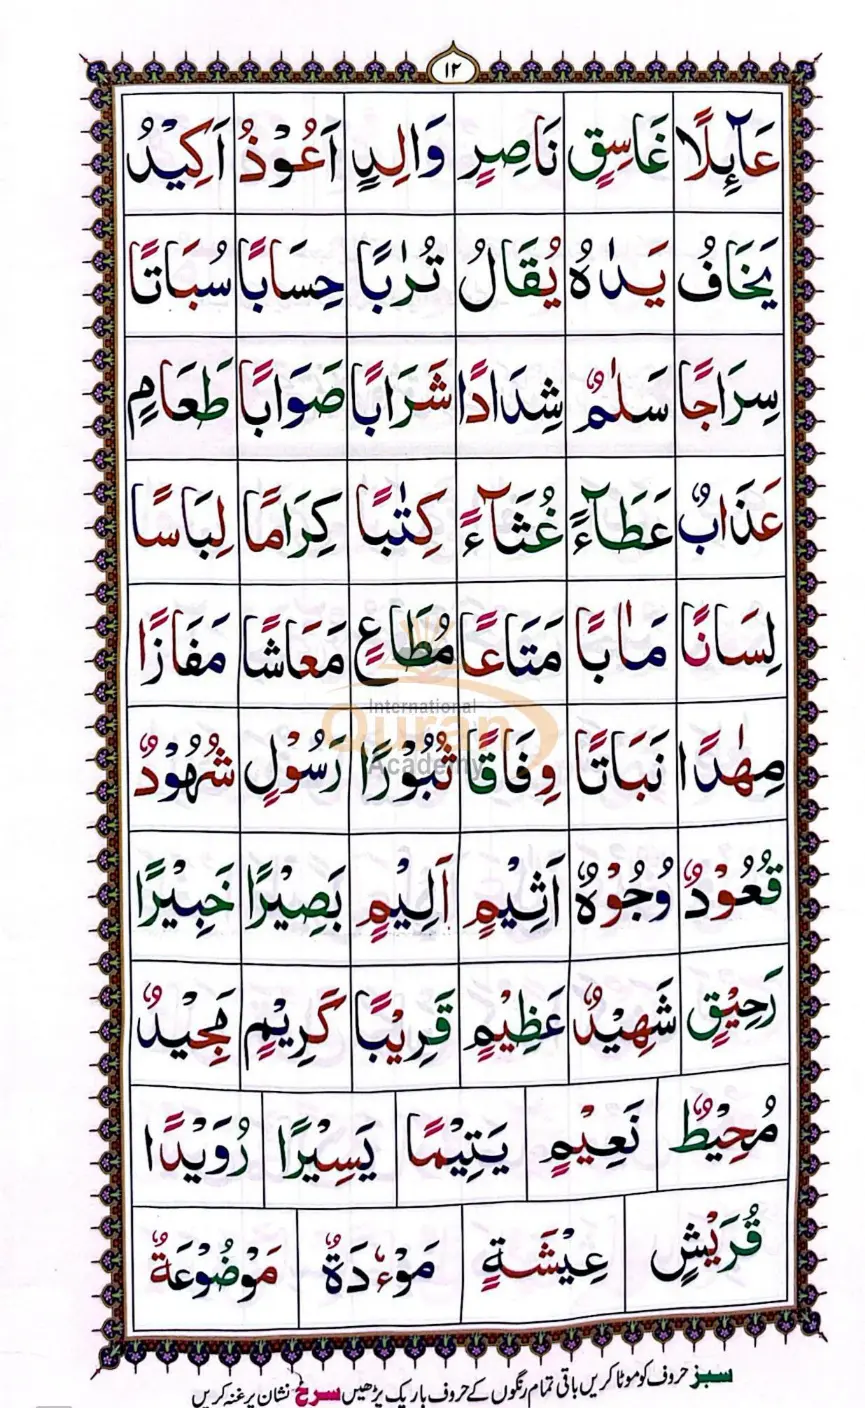 ۱۲
عَآئِلًا غَاسِقٍ نَاصِرٍ وَالِدٍ اَعُوْذُ اَكِيْدُ
يَخَافُ يَدٰهُ يُقَالُ تُرٰبًا حِسَابًا سُبَاتًا
سِرَاجًا سَلٰمٌ شِدَادًا شَرَابًا صَوَابًا طَعَامِ
عَذَابٌ عَطَآءً غُثَآءً كِتٰبًا كِرَامًا لِبَاسًا
لِسَانًا مَاٰبًا مَتَاعًا مُطَاعٍ مَعَاشًا مَفَازًا
International
Quran
Academy
مِهٰدًا نَبَاتًا وِفَاقًا ثُبُوْرًا رَسُوْلٍ شُهُوْدٌ
قُعُوْدٌ وُجُوْهٌ اَثِيْمٍ اَلِيْمٍ بَصِيْرًا خَبِيْرًا
رَحِيْقٍ شَهِيْدٌ عَظِيْمٍ قَرِيْبًا كَرِيْمٍ مَجِيْدٌ
مُحِيْطٌ نَعِيْمٍ يَتِيْمًا يَسِيْرًا رُوَيْدًا
قُرَيْشٍ عِيْشَةٍ مَوْءٗدَةٌ مَوْضُوْعَةٌ
سبز حروف کو موٹا کریں باقی تمام رنگوں کے حروف باریک پڑھیں سرخ نشان پر غنہ کریں